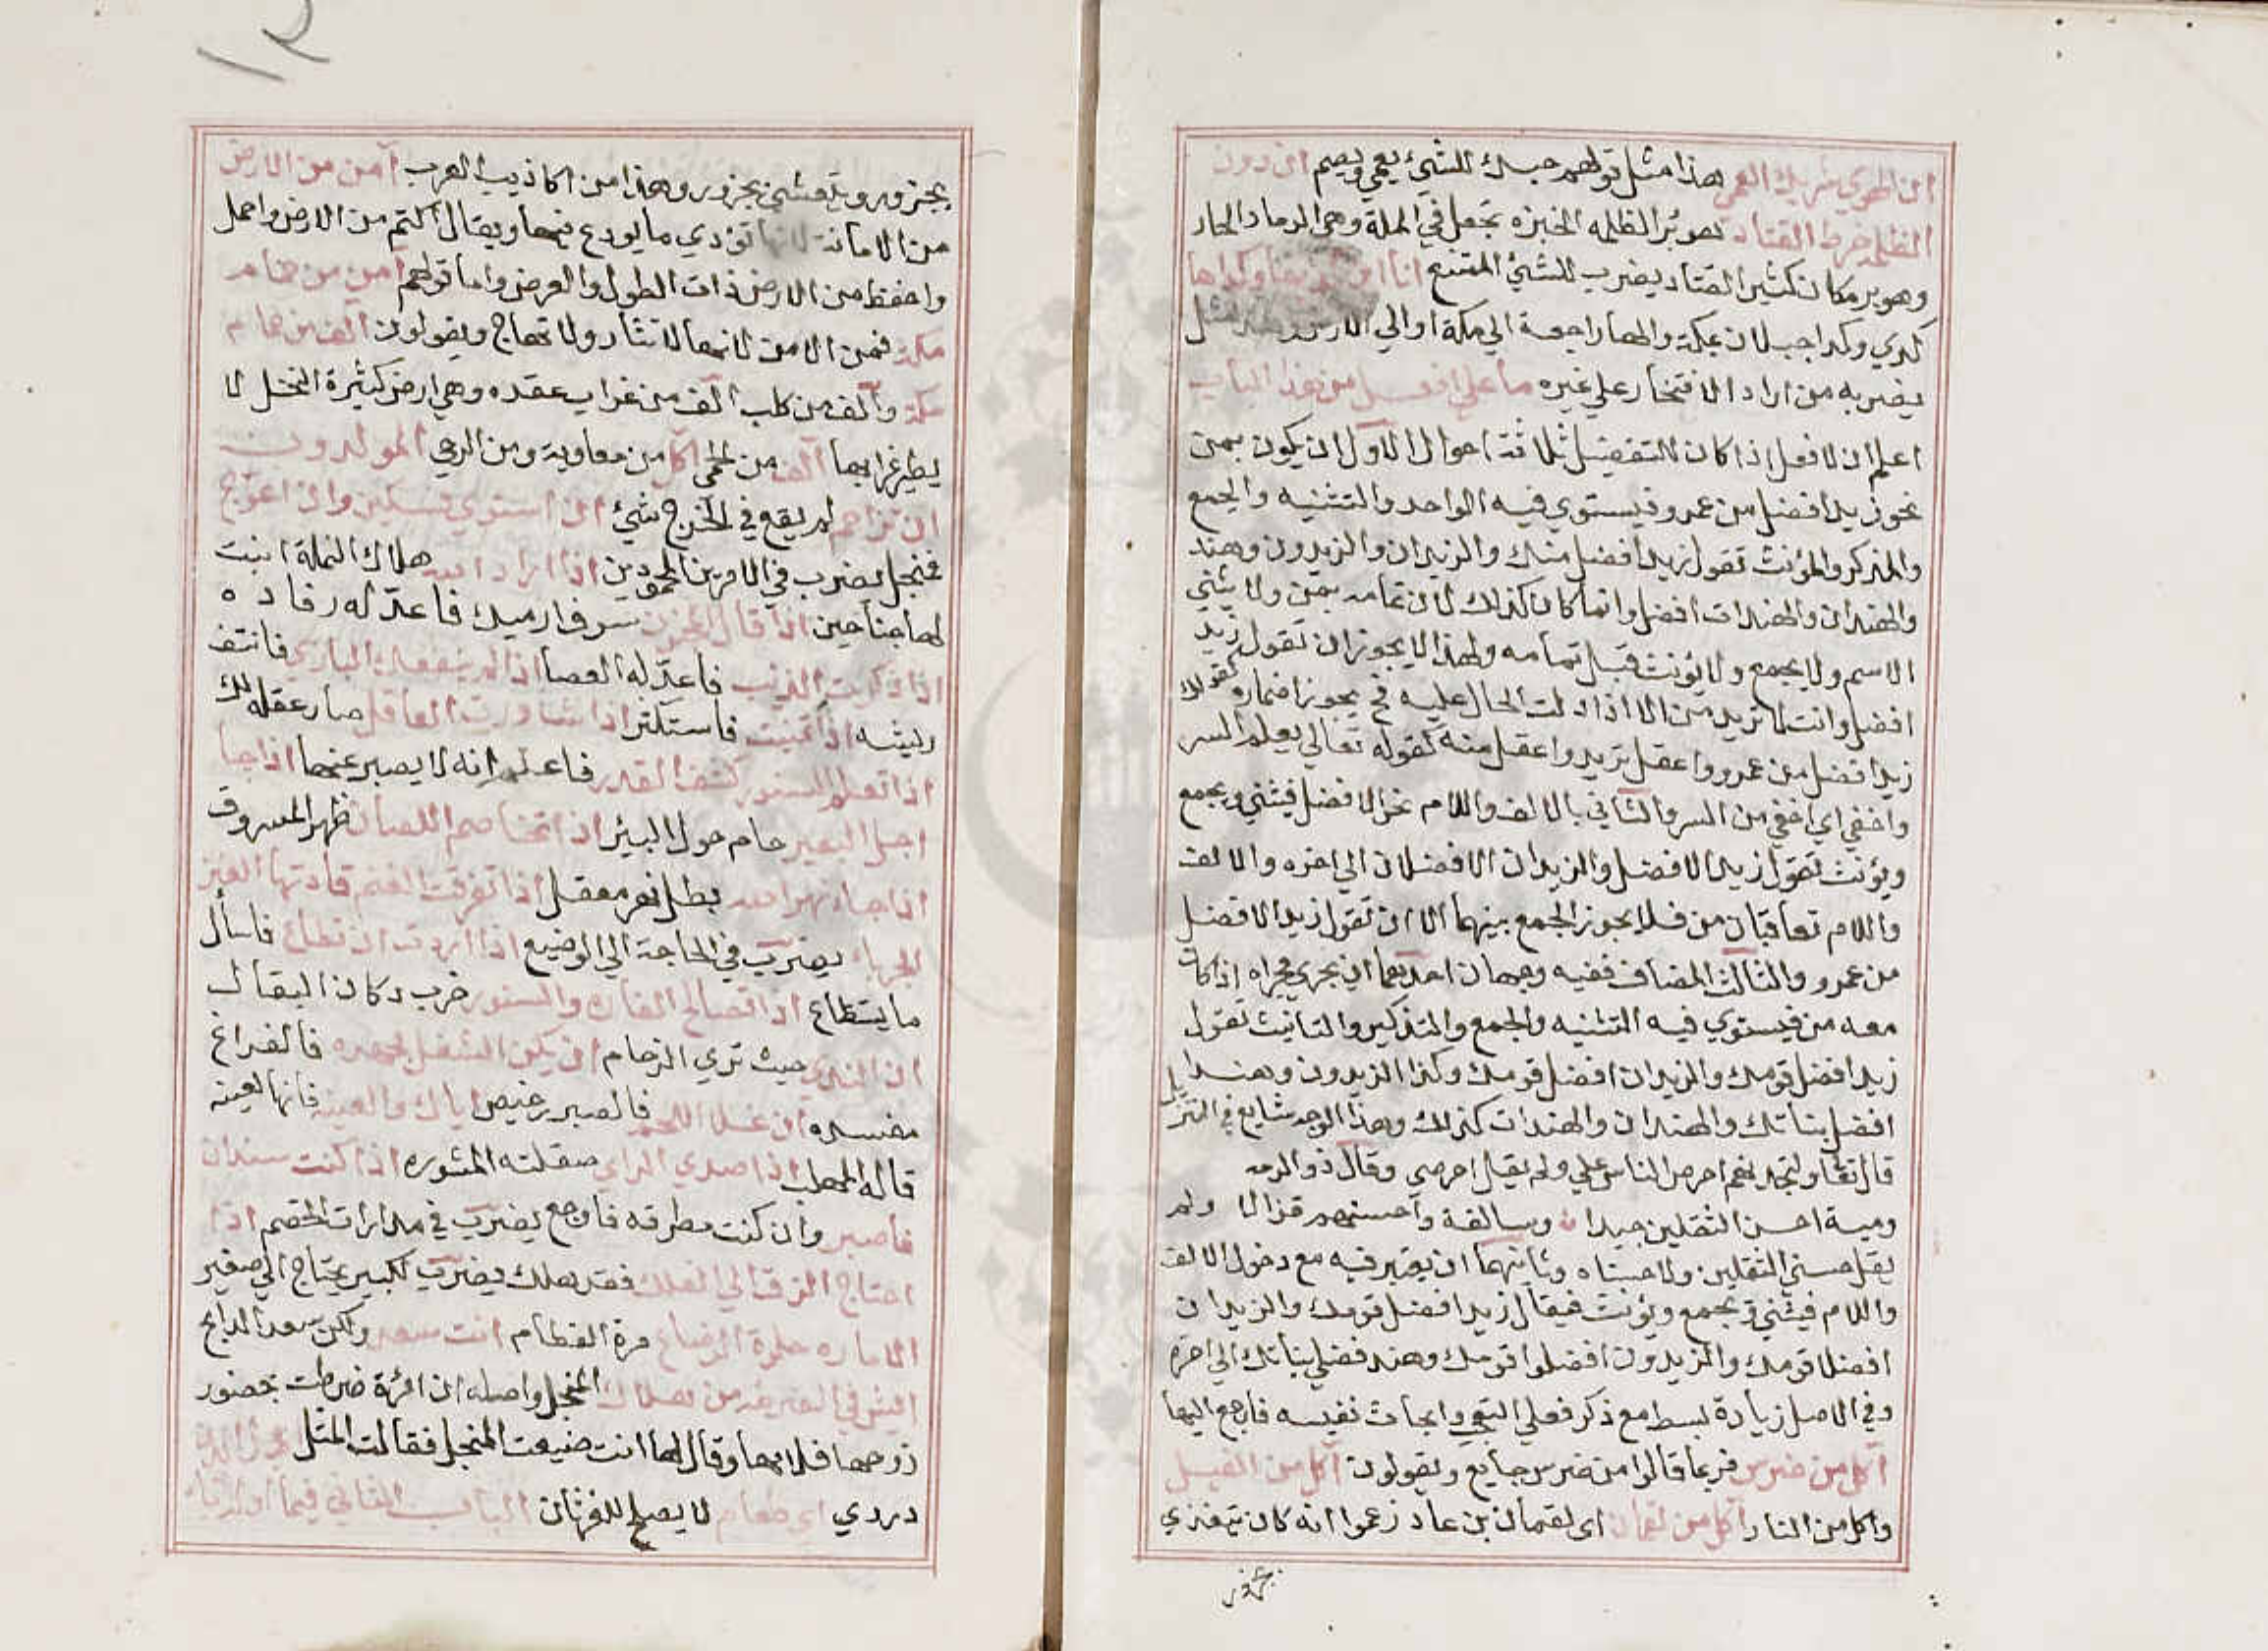 ان الهوي شريك العمي هذا مثل قولهم حبك للشيء يعمي ويصم ان دون
الظلمه خرط القتاد تعوبر الظلمه الخبزه تجعل في الملة وهي الرماد الحار
وهوبر مكان كثير القتاد يضرب للشيء الممتنع انا ابن كديها وكداها
كدي وكدا جبلان بمكة والها راجعة الي مكة اوالي الارض مثل
يضربه من اراد الافتخار علي غيره ما علي افعل من هذا الباب
اعلم ان لافعل اذا كان للتفضيل ثلاثة احوال الاول ان يكون بمن
نحو زيد افضل من عمرو فيستوي فيه الواحد والتثنيه والجمع
والمذكر والمؤنث تقول زيد افضل منك والزيدان والزيدون وهند
والهندان والهندات افضل وانما كان كذلك لان تمامه بمن ولا يثني
الاسم ولا يجمع ولا يؤنث قبل تمامه ولهذا لا يجوز ان تقول زيد
افضل وانت تريد من الا اذا دلت الحال عليه فح يجوز اضماره كقولك
زيد افضل من عمرو واعقل تريد واعقل منه كقوله تعالي يعلم السر
واخفي اي اخفي من السر والثاني بالالف واللام نحو الافضل فيثني ويجمع
ويؤنث تقول زيد الافضل والزيدان الافضلان الي اخره والالف
واللام تعاقبان من فلا يجوز الجمع بينهما الا ان تقول زيد الافضل
من عمرو والثالث المضاف ففيه وجهان احدهما ان يجري مجراه اذا كان
معه من فيستوي فيه التثنيه والجمع والتذكير والتانيث تقول
زيد افضل قومك والزيدان افضل قومك وكذا الزيدون وهند
افضل بناتك والهندان والهندات كذلك وهذا الوجه شايع في التنزيل
قال تعا ولتجدنهم احرص الناس علي ولم يقل احرصي وقال ذو الرمه
ومية احسن الثقلين جيدا وسالفة واحسنهم قذالا ولم
يقل حسني الثقلين ولا حسناه وثانيهما ان يعتبر فيه مع دخول الالف
واللام فيثني ويجمع ويؤنث فيقال زيد افضل قومك والزيدان
افضلا قومك والزيدون افضلوا قومك وهند فضلي بناتك الي اخره
وفي الاصل زيادة بسط مع ذكر فعلي التعجب وابحاث نفيسه فارجع اليها
اكل من ضرس فربما قالوا من ضرس جايع ويقولون اكل من الفيل
واكل من النار اكل من لقمان اي لقمان بن عاد زعموا انه كان يتغذي
بجزور
بجزور ويتعشي بجزور وهذا من اكاذيب العرب آمن من الارض
من الامانة لانها تؤدي ما يودع فيها ويقال اكتم من الارض واحمل
واحفظ من الارض ذات الطول والعرض واما قولهم آمن من حمام
مكة فمن الامن لانها لا تثار ولا تهاج ويقولون آلف من حمام
مكة وآلف من كلب آلف من غراب عقده وهي ارض كثيرة النخل لا
يطير غرابها آلف من الحمي آكل من معاوية ومن الرحي المولدون
ان تزاحم لم يقع في الخرج شيئ ان استوي فسكين وان اعوج
فمنجل يضرب في الامرين المحمودين اذا اراد الله هلاك النملة انبت
لها جناحين اذا قال سرف ارميك فاعد له رفاده
اذا ذكرت الذئب فاعد له العصا اذا لم ينفعك البازي فانتف
ريشه اذا تمنيت فاستكثر اذا شاورت العاقل صار عقله لك
اذا تعلم السنور كشف القدر فاعلم انه لا يصبر عنها اذا جا
اجل البعير حام حول البير اذا تخاصم اللصان ظهر المسروق
اذا جاء نهر الله بطل نهر معقل اذا تفرقت الغنم قادتها العنز
الجرباء يضرب في الحاجة الي الوضيع اذا اردت ان تطاع فاسأل
ما يستطاع اذا تصالح الفاره والسنور خرب دكان البقال
ان الندي حيث تري الزحام ان يكن الشغل مجهده فالفراغ
مفسده ان غلا اللحم فالصبر رخيص اياك والعينه فانها لعينه
قاله المهلب اذا صدي الراي صقلته المشوره اذا كنت سندان
فاصبر وان كنت مطرقه فاوجع يضرب في مدارات الخصم اذا
احتاج الزق الي الفلك فقد هلك يضرب لكبير يحتاج الي صغير
الاماره حلوة الرضاع مرة الفطام انت سعد ولكن سعد الذابح
ايش في الضرطه من هلاك المنجل واصله ان امرأة ضرطت بحضور
زوجها فلامها وقال لها انت ضيعت المنجل فقالت المثل
دردي اي طعام لا يصلح للفرثان الباب الثاني فيما اوله باء